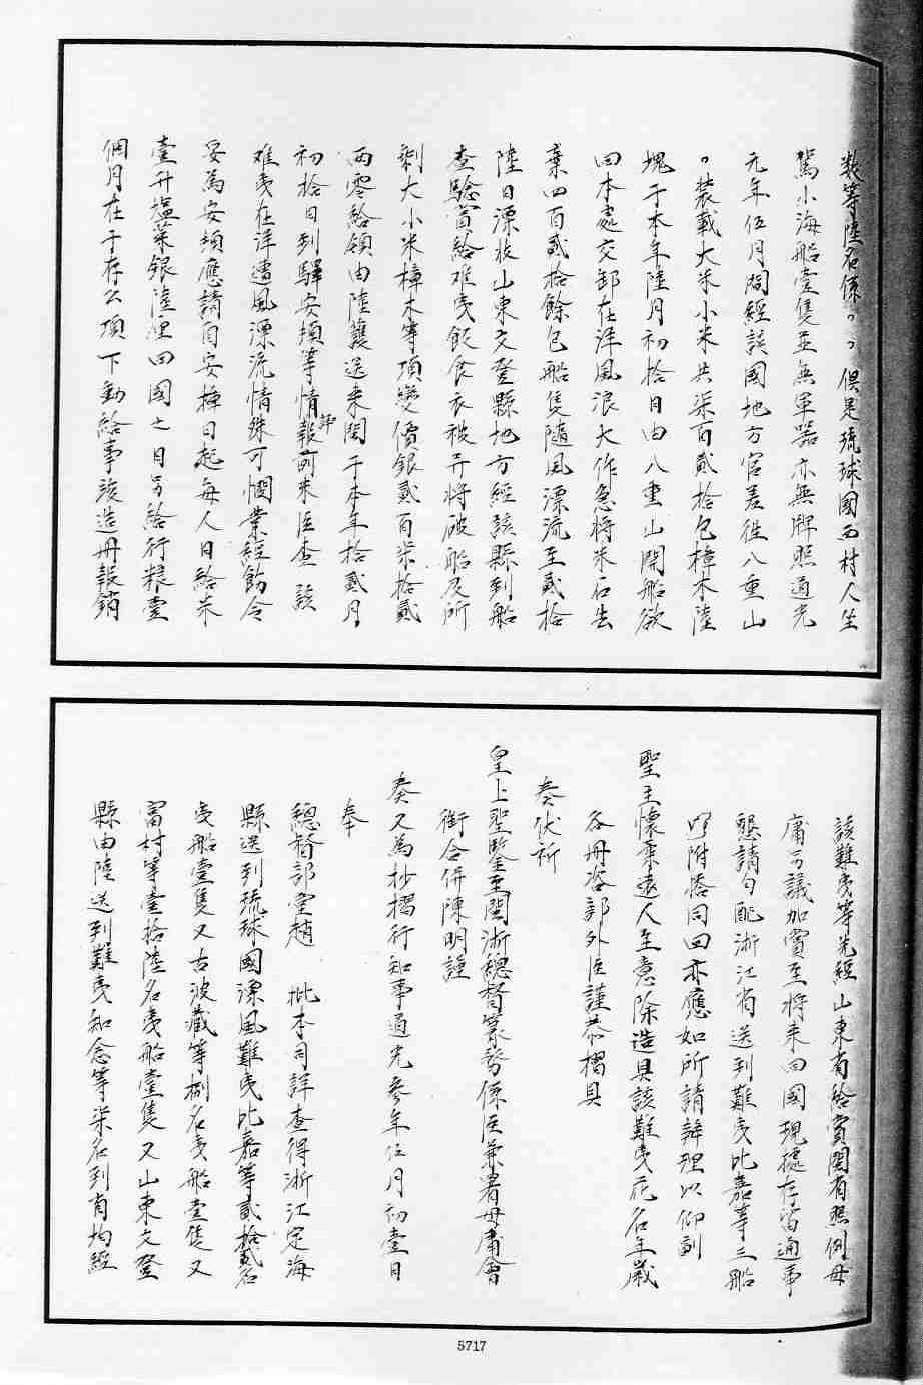 数等陸名係〻〻俱是琉球國西村人坐
駕小海船壹隻並無軍器亦無牌照道光
元年伍月間經該國地方官差徃八重山
〻裝載大米小米共柒百貳拾包樟木陸
塊于本年陸月初拾日由八重山開船欲
回本處交卸在洋風浪大作急將米石丢
棄四百貳拾餘包船隻隨風漂流至貳拾
陸日漂收山東文登縣地方經該縣到船
查驗賞給难夷飯食衣被并將破船及所
剩大小米樟木等項變價銀貳百柒拾貳
兩零給領由陸護送来閩于本年拾貳月
初拾日到驛安頓等情報前来臣查該
詳
难夷在洋遭風漂流情殊可憫業經飭令
妥為安頓應請自安揷日起每人日給米
壹升塩菜銀陸厘回國之日另給行粮壹
個月在于存公項下動給事竣造冊報銷
該難夷等先經山東省給賞閩省照例毋
庸另議加賞至將来回國現據存留通事
懇請勻配浙江省送到難夷比嘉等三船
附搭同回亦應如所請辦理以仰副
聖主懷柔遠人至意除造具該難夷花名年歲
各冊咨部外臣謹恭摺具
奏伏祈
皇上聖鑒至閩浙總督篆務係臣兼署毋庸會
銜合併陳明謹
奏又為抄摺行知事道光參年伍月初壹日
奉
總督部堂趙 批本司詳查得浙江定海
縣送到琉球國漂風難夷比嘉等貳拾貳名
夷船壹隻又古波藏等捌名夷船壹隻又
富村等壹拾陸名夷船壹隻又山東文登
縣由陸送到難夷知念等柒名到省均經
5717